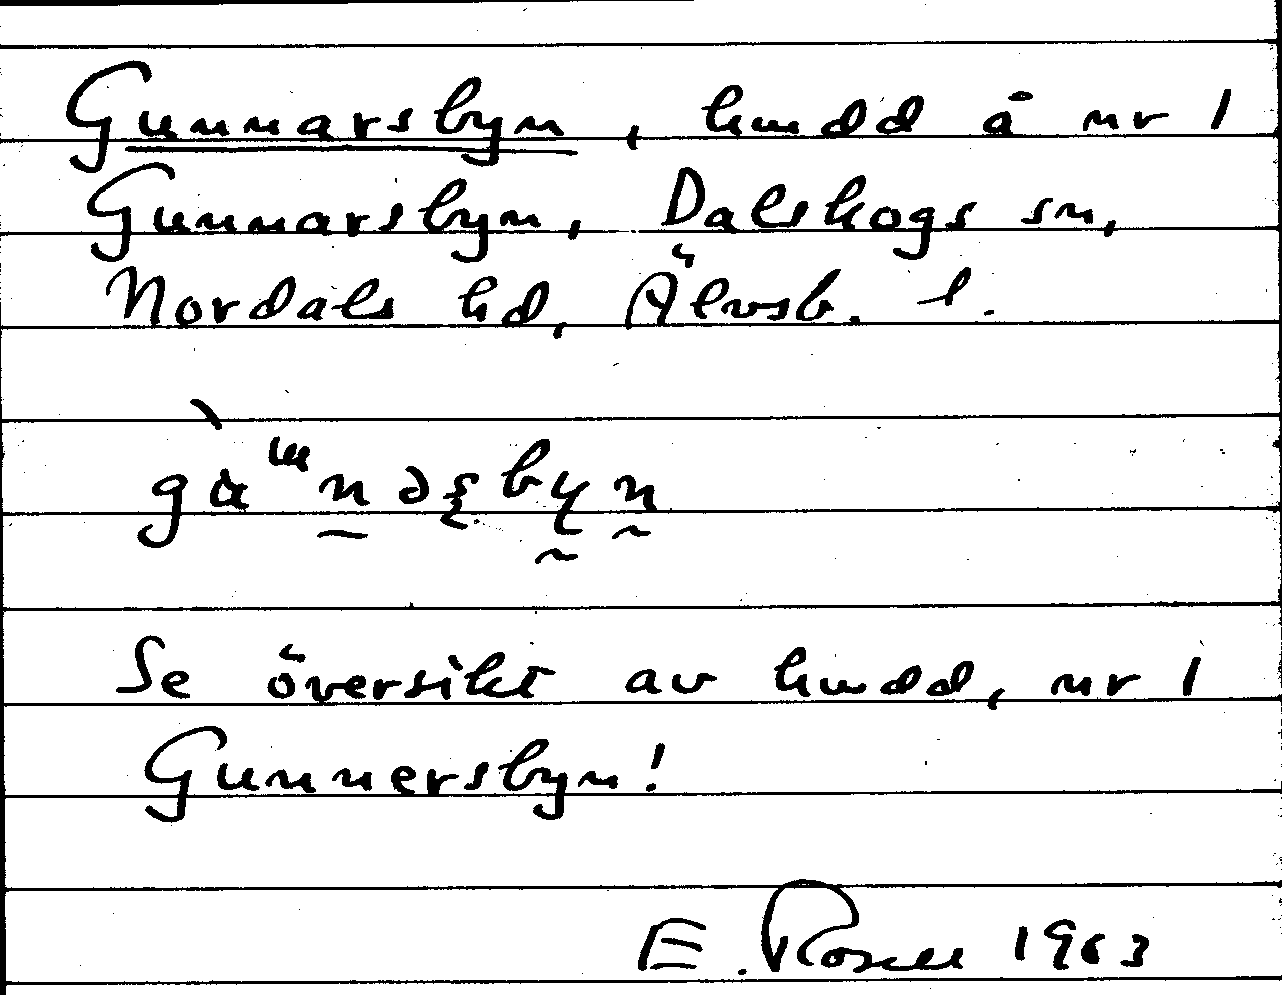 Gunnarsbyn, hmdd å nr 1
Gunnarsbyn, Dalskogs sn,
Nordals hd, Älvsb. l.
Se översikt av hmdd, nr 1
Gunnersbyn!
E. Rosell 1963